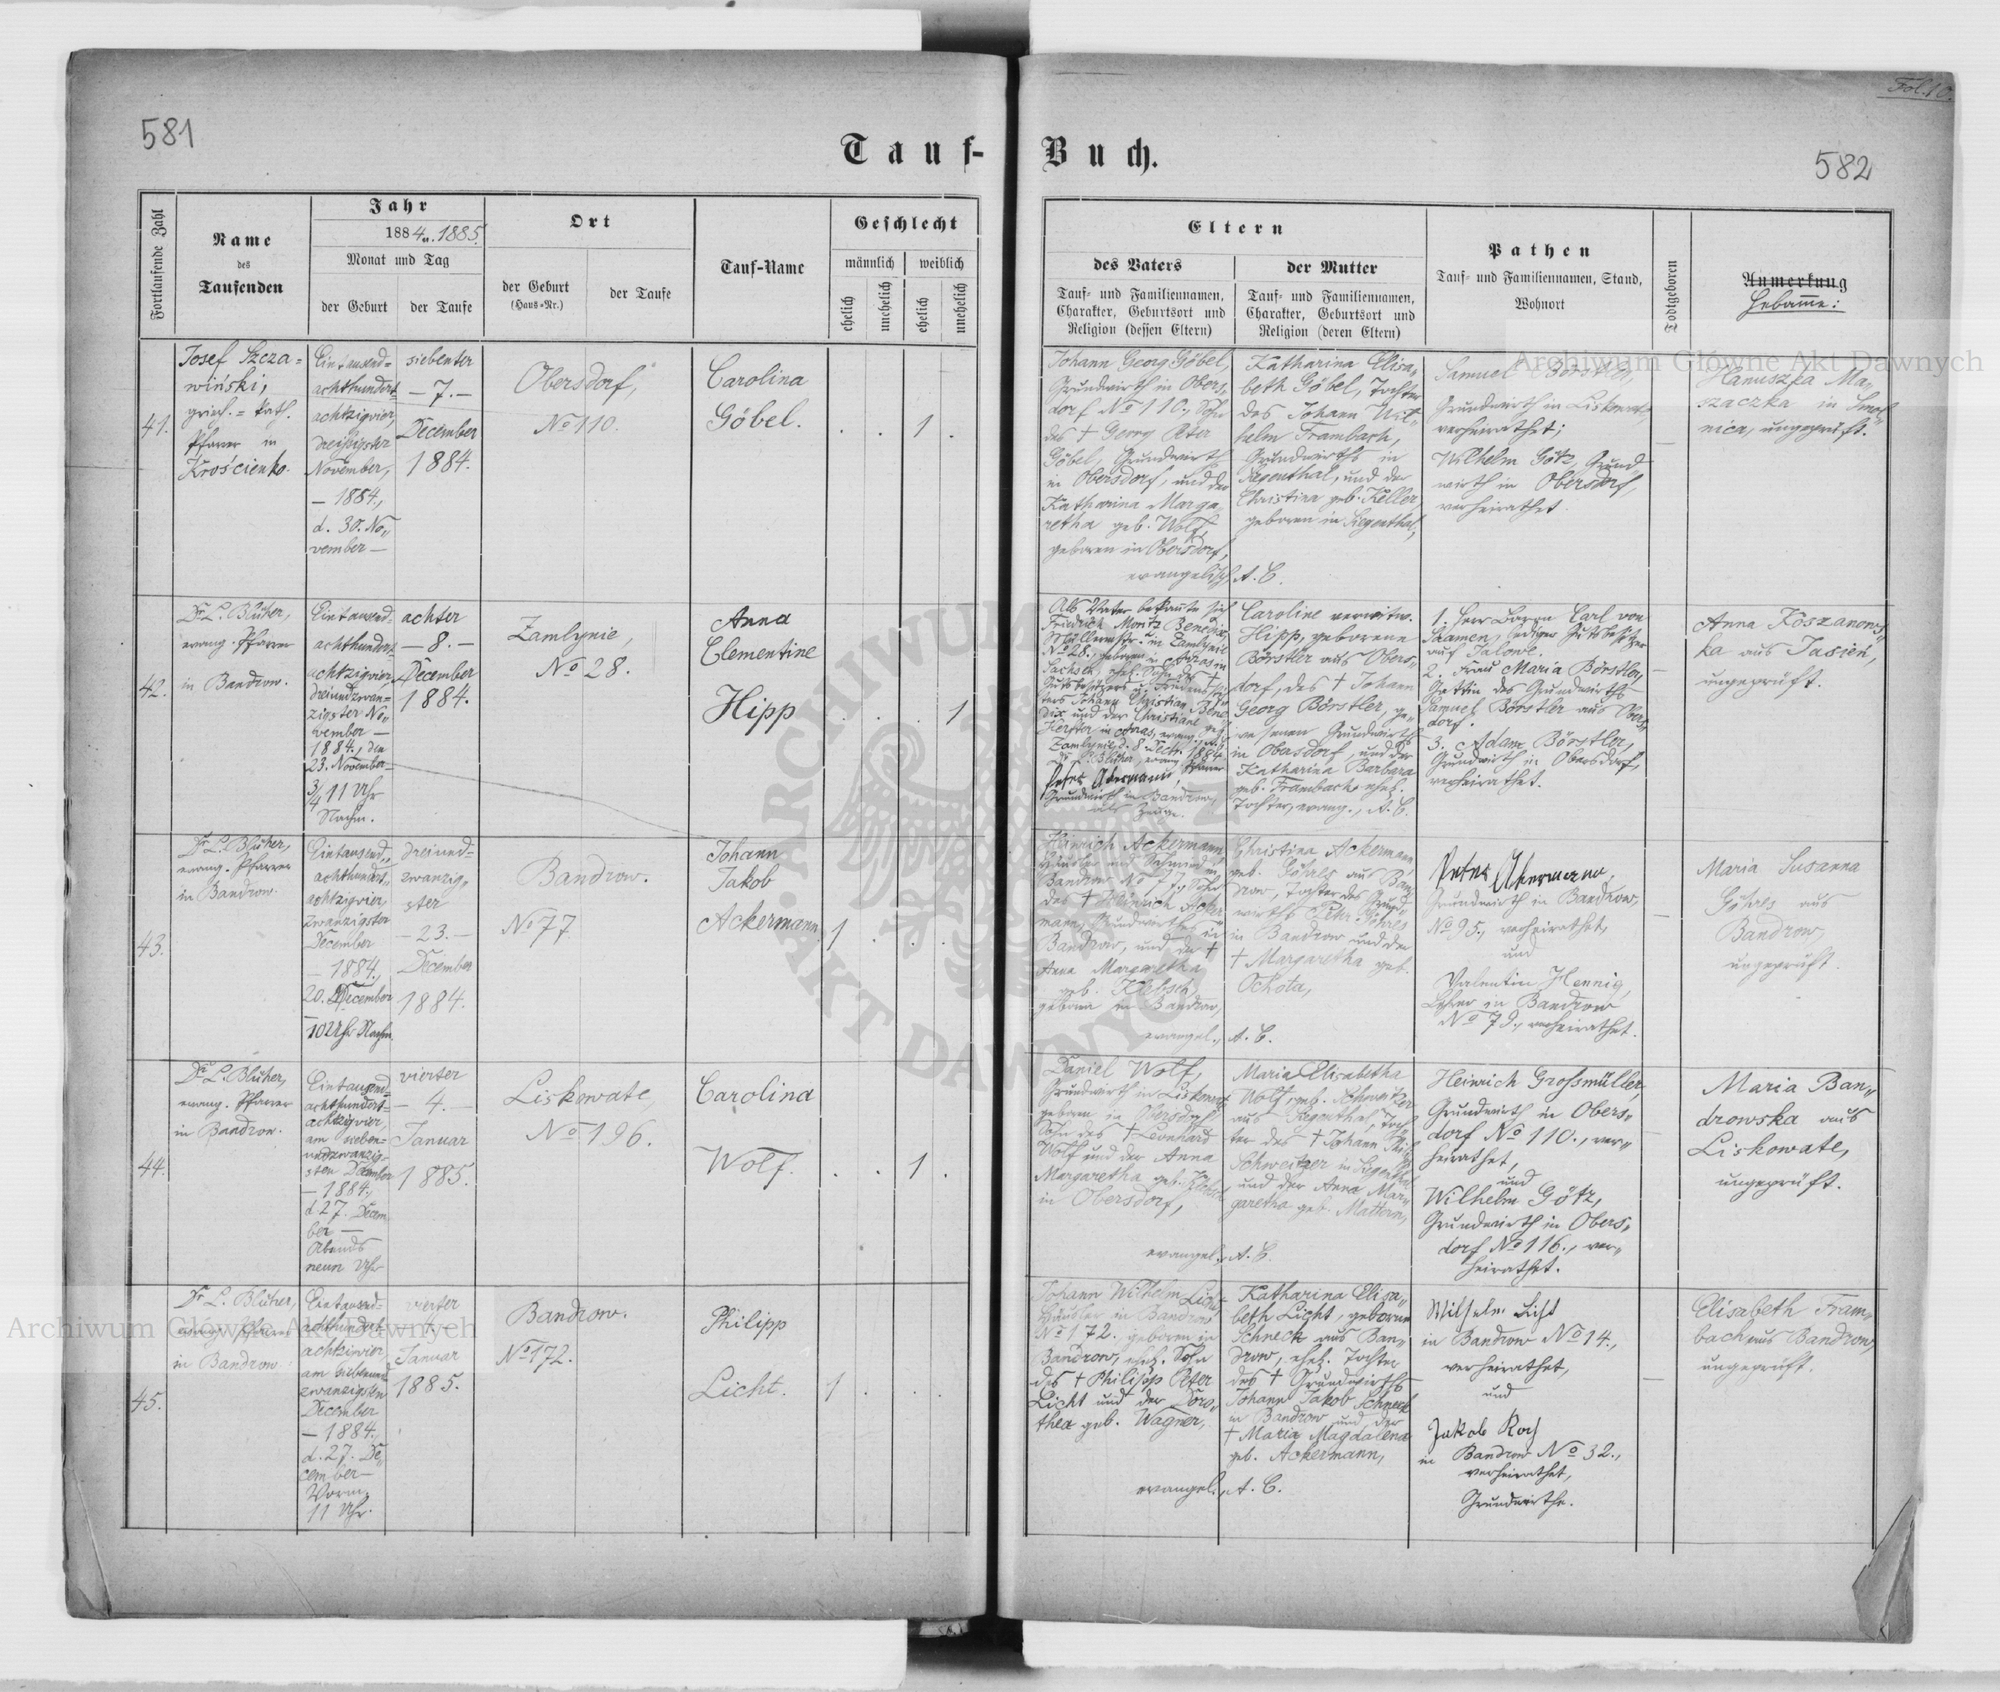 Fol. 10.
581
Tauf-
Buch.
582
Fortlaufende Zahl
Name
des
Taufenden
Jahr
1884 u. 1885.
Monat und Tag
der Geburt
der Taufe
Ort
der Geburt
(Haus-Nr.)
der Taufe
Tauf-Name
Geschlecht
männlich
weiblich
ehelich
unehelich
ehelich
unehelich
Eltern
des Vaters
Tauf- und Familiennamen,
Charakter, Geburtsort und
Religion (dessen Eltern)
der Mutter
Tauf- und Familiennamen,
Charakter, Geburtsort und
Religion (deren Eltern)
Pathen
Tauf- und Familiennamen, Stand,
Wohnort
Todtgeboren
Anmerkung
Hebamme:
41.
Josef Szcza=
wiński,
griech.=kath.
Pfarrer in
Krościenko.
Eintausend=
achthundert=
achtzigvier,
dreißigster
November,
— 1884.,
d. 30. No„
vember —
siebenter
— 7. —
December
1884.
Obersdorf,
No 110.
Carolina
Göbel.
1
Johann Georg Göbel,
Grundwirth in Obers„
dorf No 110., Sohn
des † Georg Peter
Göbel, Grundwirth
in Obersdorf, und der
Katharina Marga„
retha geb. Wolf,
geboren in Obersdorf,
evangelisch
Katharina Elisa„
beth Göbel, Tochter
des Johann Wil„
helm Frambach,
Grundwirths in
Siegenthal, und der
Christina geb. Keller,
geboren in Siegenthal,
A. C.
Samuel Börstler,
Grundwirth in Liskowate,
verheirathet;
Wilhelm Götz, Grund„
wirth in Obersdorf,
verheirathet.
Hanuszka Ma„
szaczka in Smol„
nica, ungeprüft.
42.
Dr. L. Blüher,
evang. Pfarrer
in Bandrow.
Eintausend=
achthundert=
achtzigvier,
dreiundzwan=
zigster No„
vember —
1884., den
23. November
3/4 11 Uhr
Nachm.
achter
— 8. —
December
1884.
Zamlynie,
No 28.
Anna
Clementine
Hipp
1
Als Vater bekannte sich
Friedrich Moritz Benedix,
No 28., geboren in
Sachsen, ehel. Sohn des †
Johann Christian Bene„
dix und der Christiane geb.
Zamlynie d. 8. Dec. 1884.
Dr. L. Blüher, evang. Pfarrer
Peter Akermann,
Grundwirth in Bandrow,
als Zeuge.
Caroline verwitw.
Hipp, geborene
Börstler aus Obers„
dorf, des † Johann
Georg Börstler, ge„
wesenen Grundwirths
in Obersdorf, und der
Katharina Barbara
geb. Frambach ehel.
Tochter, evang., A. C.
1. Herr Baron Carl von
Skamen, lediger Gutsbesitzer
auf Jalowe.
2. Frau Maria Börstler,
Gattin des Grundwirths
Samuel Börstler aus Obers„
dorf.
3. Adam Börstler,
Grundwirth in Obersdorf,
verheirathet.
Anna Koszanows„
ka aus Jasień,
ungeprüft.
43.
Dr. L. Blüher,
evang. Pfarrer
in Bandrow.
Eintausend„
achthundert„
achtzigvier,
zwanzigster
December
— 1884.,
20. December
10 Uhr Nachm.
dreiund=
zwanzig„
ster
— 23. —
December
1884.
Bandrow.
No 77
Johann
Jakob
Ackermann.
1
Heinrich Ackermann
Häusler und Schmied in
Bandrow No 77., Sohn
des † Heinrich Acker„
mann, Grundwirthes in
Bandrow, und der †
Anna Margaretha
geb. Klebsch,
geboren in Bandrow,
evangel.,
Christina Ackermann,
geb. Göhres aus Ban„
drow, Tochter des Grund„
wirths Peter Göhres
in Bandrow und der
† Margaretha geb.
Ochota,
A. C.
Peter Akermann,
Grundwirth in Bandrow,
No 95., verheirathet,
und
Valentin Hennig,
Lehrer in Bandrow
No 79., verheirathet.
Maria Susanna
Göhres aus
Bandrow,
ungeprüft.
44.
Dr. L. Blüher,
evang. Pfarrer
in Bandrow.
Eintausend=
achthundert=
achtzigvier,
am sieben=
undzwanzig=
sten December
— 1884.,
d. 27. Decem„
ber —
Abends
neun Uhr
vierter
— 4. —
Januar
1885.
Liskowate,
No 196.
Carolina
Wolf.
1
Daniel Wolf,
Grundwirth in Liskowate
geboren in Obersdorf
Sohn des † Leonhard
Wolf und der Anna
Margaretha geb.
in Obersdorf,
evangel.,
Maria Elisabetha
Wolf, geb. Schweitzer
aus Siegenthal, Toch„
ter des † Johann
Schweitzer in Siegenthal
und der Anna Mar„
garetha geb. Mattern,
A. C.
Heinrich Großmüller,
Grundwirth in Obers„
dorf No 110., ver„
heirathet,
und
Wilhelm Götz,
Grundwirth in Obers„
dorf No 116., ver„
heirathet.
Maria Ban„
drowska aus
Liskowate,
ungeprüft.
45.
Dr. L. Blüher,
evang. Pfarrer
in Bandrow.
Eintausend=
achthundert
achtzigvier
am siebenund
zwanzigsten
December
— 1884.,
d. 27. De„
cember —
Vorm.
11 Uhr.
vierter
— 4. —
Januar
1885.
Bandrow.
No 172.
Philipp
Licht.
1
Johann Wilhelm Licht,
Häusler in Bandrow
No 172. geboren in
Bandrow, ehel. Sohn
des † Philipp Peter
Licht und der Doro„
thea geb. Wagner,
evangel.,
Katharina Elisa„
beth Licht, geborene
Schneck aus Ban„
drow, ehel. Tochter
des † Grundwirths
Johann Jakob Schneck
in Bandrow und der
† Maria Magdalena
geb. Ackermann,
A. C.
Wilhelm Licht
in Bandrow No 14.,
verheirathet,
und
Jakob Koch
in Bandrow No 32.,
verheirathet,
Grundwirthe.
Elisabeth Fram„
bach aus Bandrow,
ungeprüft.
Archiwum Główne Akt Dawnych
Archiwum Główne Akt Dawnych
ARCHIWUM
AKT DAWNYCH